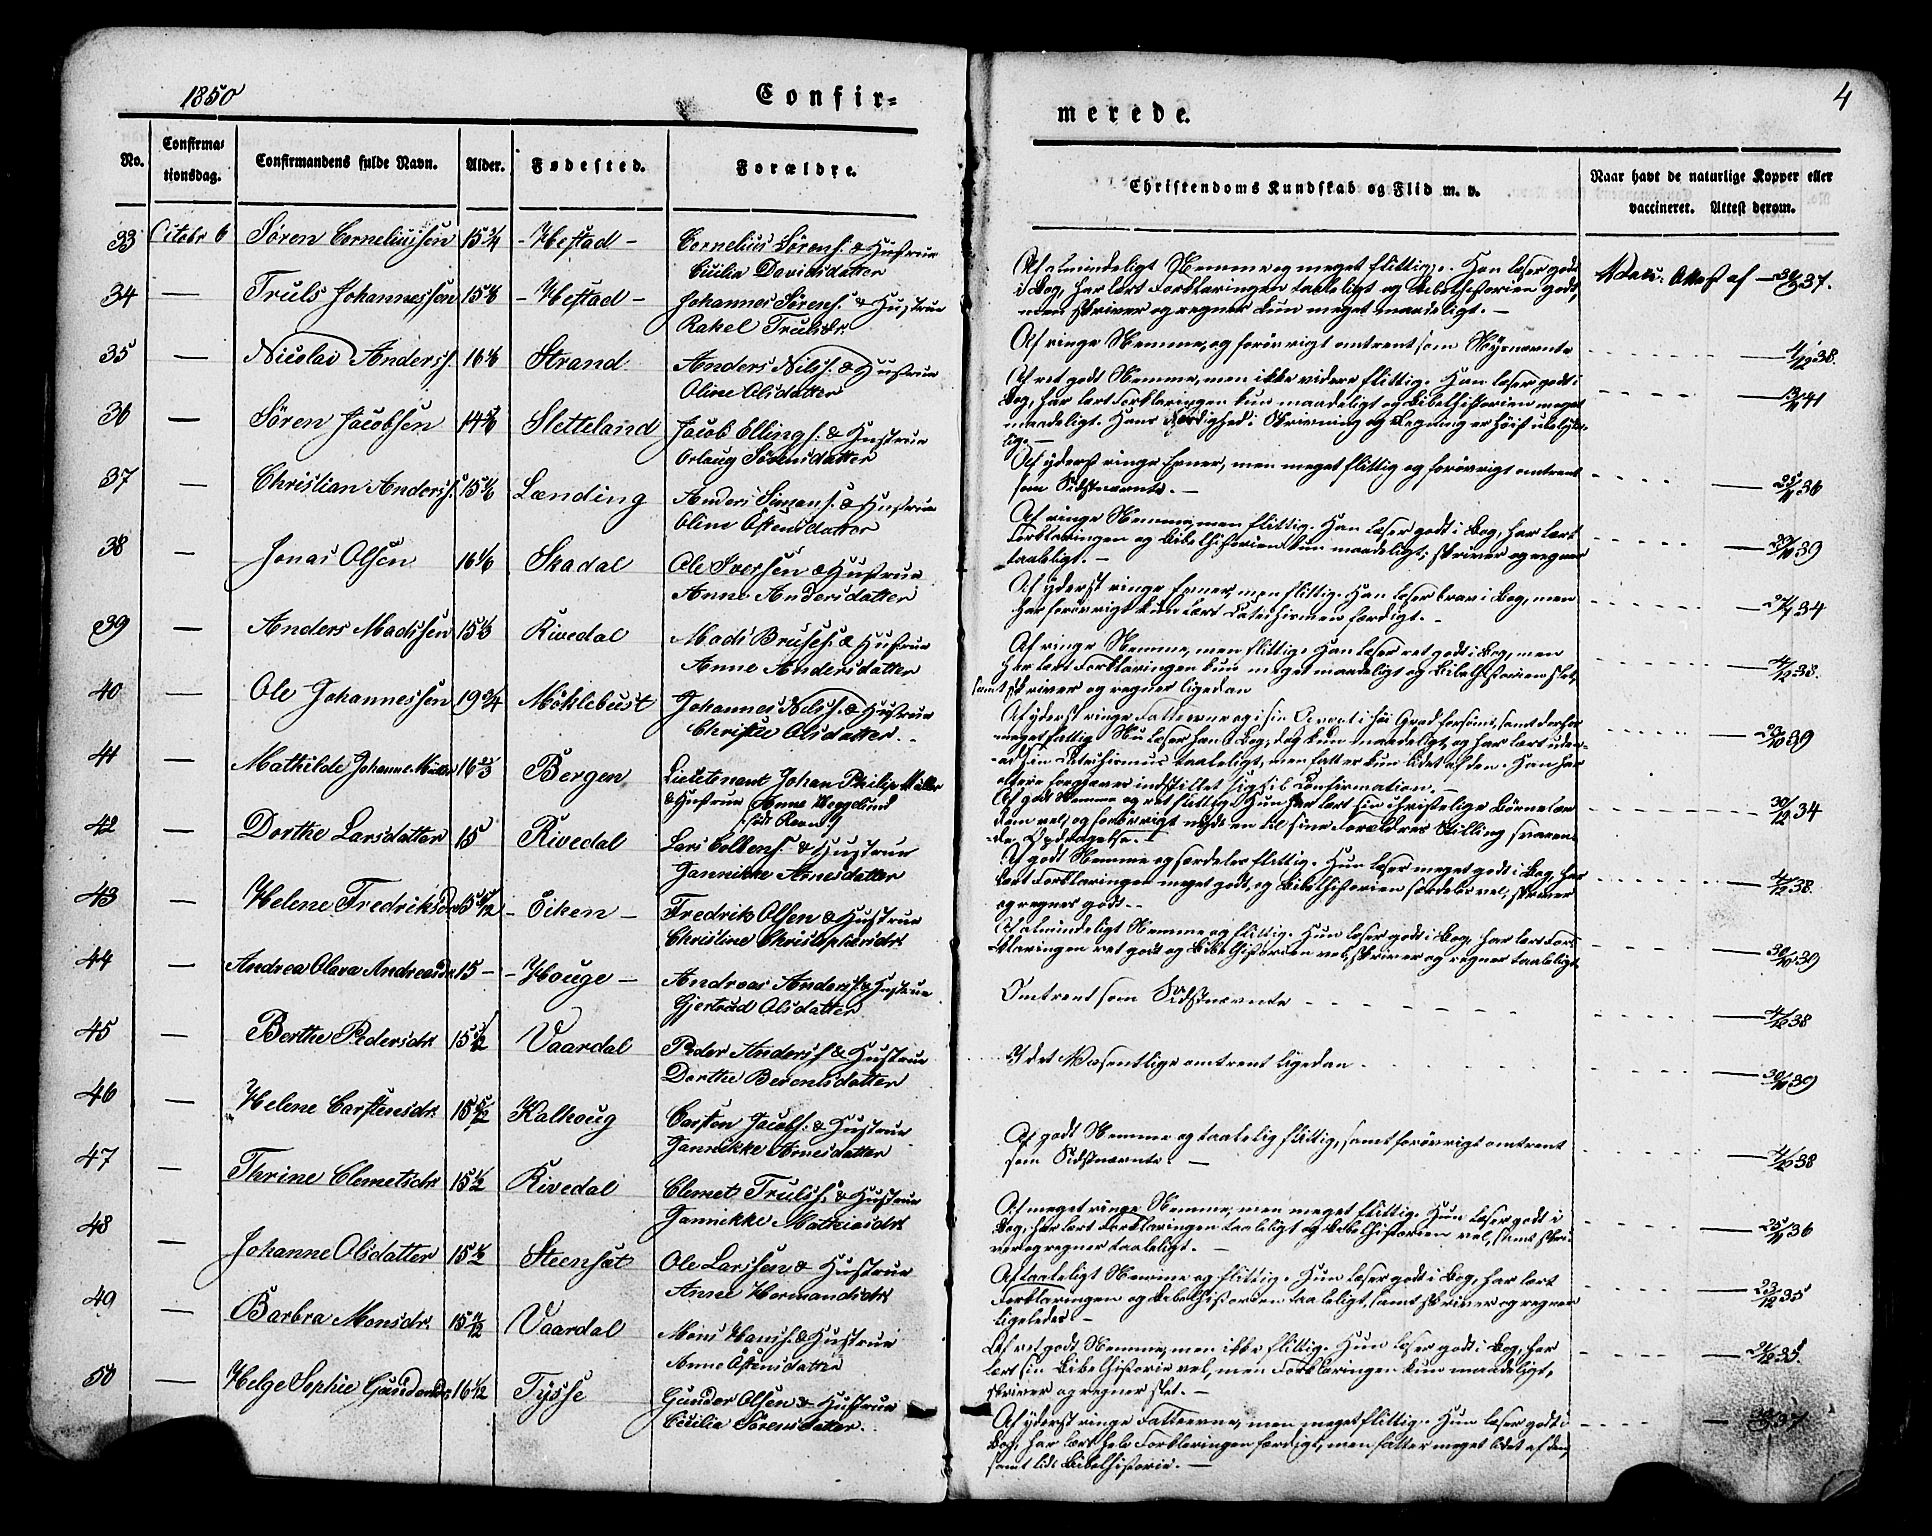 1850
Confir=
merede.
4
No. Confirma=tionsdag. Confirmandens fulde Navn. Alder. Fødested. Forældre.
Christendoms Kundskab og Flid m. v.
Naar havt de naturlige Kopper eller
vaccineret. Attest derom.
33 Octobr 6 Søren Corneliussen 15 3/4 - Hestad - Cornelius Sørens. & Hustrue
Cicilia Davidsdatter
Af almindeligt Nemme og meget flittig. Han læser godt
i Bog, har lært Forklaringen taaleligt og Bibelhistorien godt,
men skriver og regner kun meget maadeligt. -
34 — Truls Johannessen - Hestad - Johannes Sørens. & Hustrue
Rakel Trulsdr.
Af ringe Nemme, og forøvrigt omtrent som Næstnævnte
4/12 38.
35 — Nicolai Anderss. 16 1/6 Strand Anders Nilss. & Hustrue
Oline Olsdatter
Af ret godt Nemme, men ikke videre flittig. Han læser godt i
Bog, har lært Forklaringen kun maadeligt og Bibelhistorien meget
maadeligt. Hans Færdighed i Skrivning og Regning er
36 — Søren Jacobsen Sletteland Jacob Ellings. & Hustrue
Orlaug Sørensdatter
Af yderst ringe Evner, men meget flittig og forøvrigt omtrent
som Sidstnævnte. -
37 — Christian Anderss. 15 1/6 Lænding Anders Simens. & Hustrue
Oline Østensdatter
Af ringe Nemme, men flittig. Han læser godt i Bog, har lært
Forklaringen og Bibelhistorien kun maadeligt, skriver og regner
taaleligt. -
38 — Jonas Olsen 16 1/6 Skadal Ole Iversen & Hustrue
Anne Andersdatter
Af yderst ringe Evner, men flittig. Han læser brav i Bog, men
har forøvrigt kun lært Catechismen færdigt. -
39 — Anders Madssen 15 1/3 Rivedal Mads Bruses. & Hustrue
Anne Andersdatter
Af ringe Nemme, men flittig. Han læser ret godt i Bog, men
har lært Forklaringen kun meget maadeligt og Bibelhistorien slet,
samt skriver og regner ligedan
40 — Ole Johannessen 19 3/4 Møhlebust Johannes Nilss. & Hustrue
Christie Olsdatter.
Af yderst ringe Fatteevne og i sin Opvæxt i høi Grad forsømt, samt derfor
meget fattig Nu læser han i Bog, dog kun maadeligt, og har lært uden-
ad sin Catechismus taaleligt, men fatter kun lidet af den. Han har
oftere forgjæves indstillet sig til Confirmation. -
41 — Mathilde Johanne Müller 16 2/3 Bergen Lieutenant Johan Philip Müller
& Hustrue Anne Heggelund
født
Af godt Nemme og ret flittig. Hun har lært sin christelige Børnelær-
dom vel, og forøvrigt nydt en til sine Forældres Stilling svaren-
de Opdragelse. -
42 — Dorthe Larsdatter 15 Rivedal Lars Colbens. & Hustrue
Jannikke Arnesdatter
Af godt Nemme og særdeles flittig. Hun læser meget godt i Bog, har
lært Forklaringen meget godt, og Bibelhistorien særdeles vel, skriver
og regner godt. -
43 — Helene Fredriksdr. - Eiken - Fredrik Olsen & Hustrue
Christine Christophersdr.
Af almindeligt Nemme og flittig. Hun læser godt i Bog, har lært For-
klaringen ret godt og Bibelhistorien vel, skriver og regner taaleligt.
44 — Andrea Olava Andreasdr. 15 - - Houge - Andreas Anderss. & Hustrue
Gjertrud Olsdatter
Omtrent som Sidstnævnte
45 — Berthe Pedersdr. 15 1/2 Vaardal Peder Anderss. & Hustrue
Dorthe Berentsdatter
I det Væsentlige omtrent ligedan
46 — Helene Carstensdr. 15 5/12 Kalhoug Carsten Jacobs. & Hustrue
Jannikke Arnesdatter
Af godt Nemme og taalelig flittig, samt forøvrigt omtrent
som Sidstnævnte. -
47 — Thrine Clemetsdr. 15 1/2 Rivedal Clemet Trulss. & Hustrue
Jannikke Mathiasdr.
Af meget ringe Nemme, men meget flittig. Hun læser godt i
Bog, har lært Forklaringen taaleligt og Bibelhistorien vel, samt skri-
ver og regner taaleligt. -
48 — Johanne Olsdatter 15 1/2 Steensæt Ole Larssen & Hustrue
Anne Hermandsdr.
Af taaleligt Nemme og flittig. Hun læser godt i Bog, har lært
Forklaringen og Bibelhistorien taaleligt, samt skriver og regner
ligeledes -
23/12 35
49 — Barbra Monsdr. 15 Vaardal Mons Hanss. & Hustrue
Anne Østensdatter
Af ret godt Nemme, men ikke flittig. Hun læser godt i Bog, har
lært sin Bibelhistorie vel, men Forklaringen kun maadeligt,
skriver og regner slet. -
50 — Helge Sophie Gundersdr. 16 1/2 Tysse Gunder Olsen & Hustrue
Cicilia Sørensdatter.
Af yderst ringe Fatteevne, men meget flittig. Hun læser godt i
Bog, har lært hele Forklaringen færdigt, men fatter meget lidet af den,
samt lidt Bibelhistorie. -